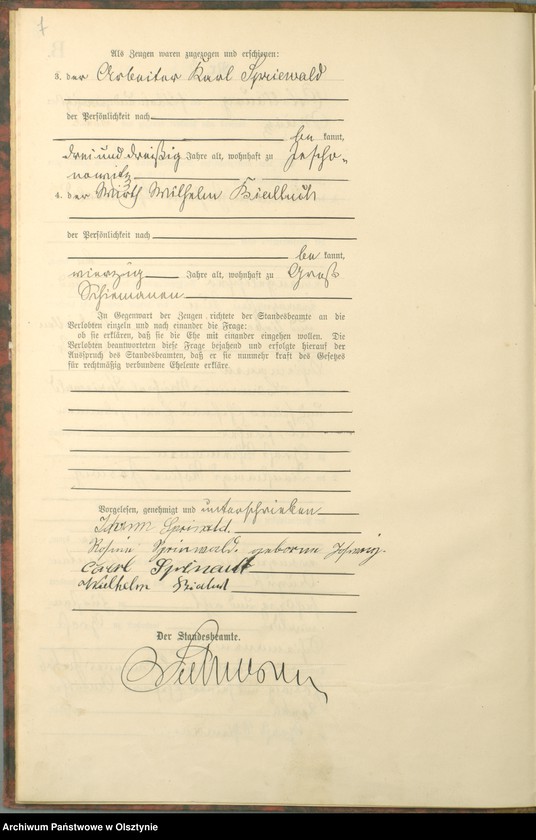 Als Zeugen waren zugezogen und erschienen:
3. der Arbeiter Karl Spriewald
der Persönlichkeit nach
be kannt,
drei und dreißig Jahre alt, wohnhaft zu Jescho-
nowitz
4. der Wirth Wilhelm Bialluch
der Persönlichkeit nach
be kannt,
vierzig Jahre alt, wohnhaft zu Groß
Schiemanen
In Gegenwart der Zeugen richtete der Standesbeamte an die
Verlobten einzeln und nach einander die Frage:
ob sie erklären, daß sie die Ehe mit einander eingehen wollen. Die
Verlobten beantworteten diese Frage bejahend und erfolgte hierauf der
Ausspruch des Standesbeamten, daß er sie nunmehr kraft des Gesetzes
für rechtmäßig verbundene Eheleute erkläre.
Vorgelesen, genehmigt und unterschrieben
Johann Spriewald.
Rosine Spriewald. geborene
Carl
Wilhelm
Der Standesbeamte.
Archiwum Państwowe w Olsztynie